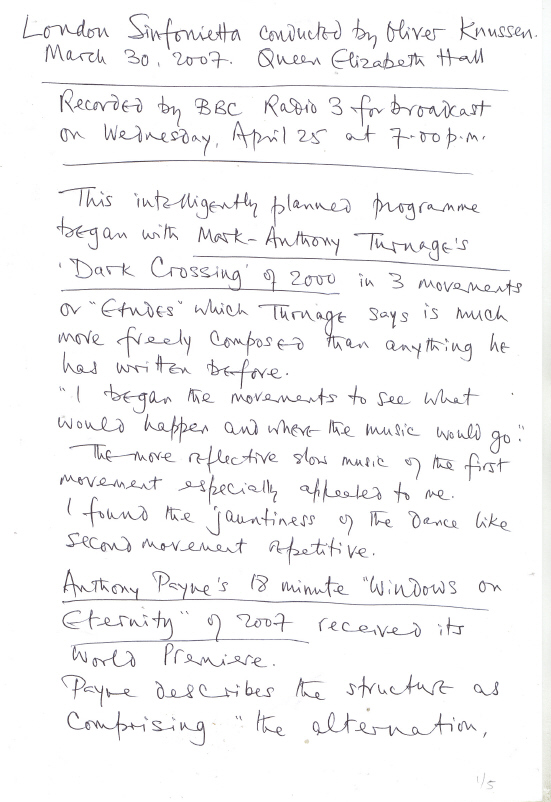 London Sinfonietta conducted by Oliver Knussen.
March 30, 2007. Queen Elizabeth Hall
Recorded by BBC Radio 3 for broadcast
on Wednesday, April 25 at 7.00 p.m.
This intelligently planned programme
began with Mark-Anthony Turnage's
'Dark Crossing' of 2000 in 3 movements
or "Etudes" which Turnage says is much
more freely composed than anything he
has written before.
"I began the movements to see what
would happen and where the music would go."
The more reflective slow music of the first
movement especially appealed to me.
I found the jauntiness of the dance like
second movement repetitive.
Anthony Payne's 18 minute "Windows on
Eternity" of 2007 received its
World Premiere.
Payne describes the structure as
comprising "the alternation,
1/5